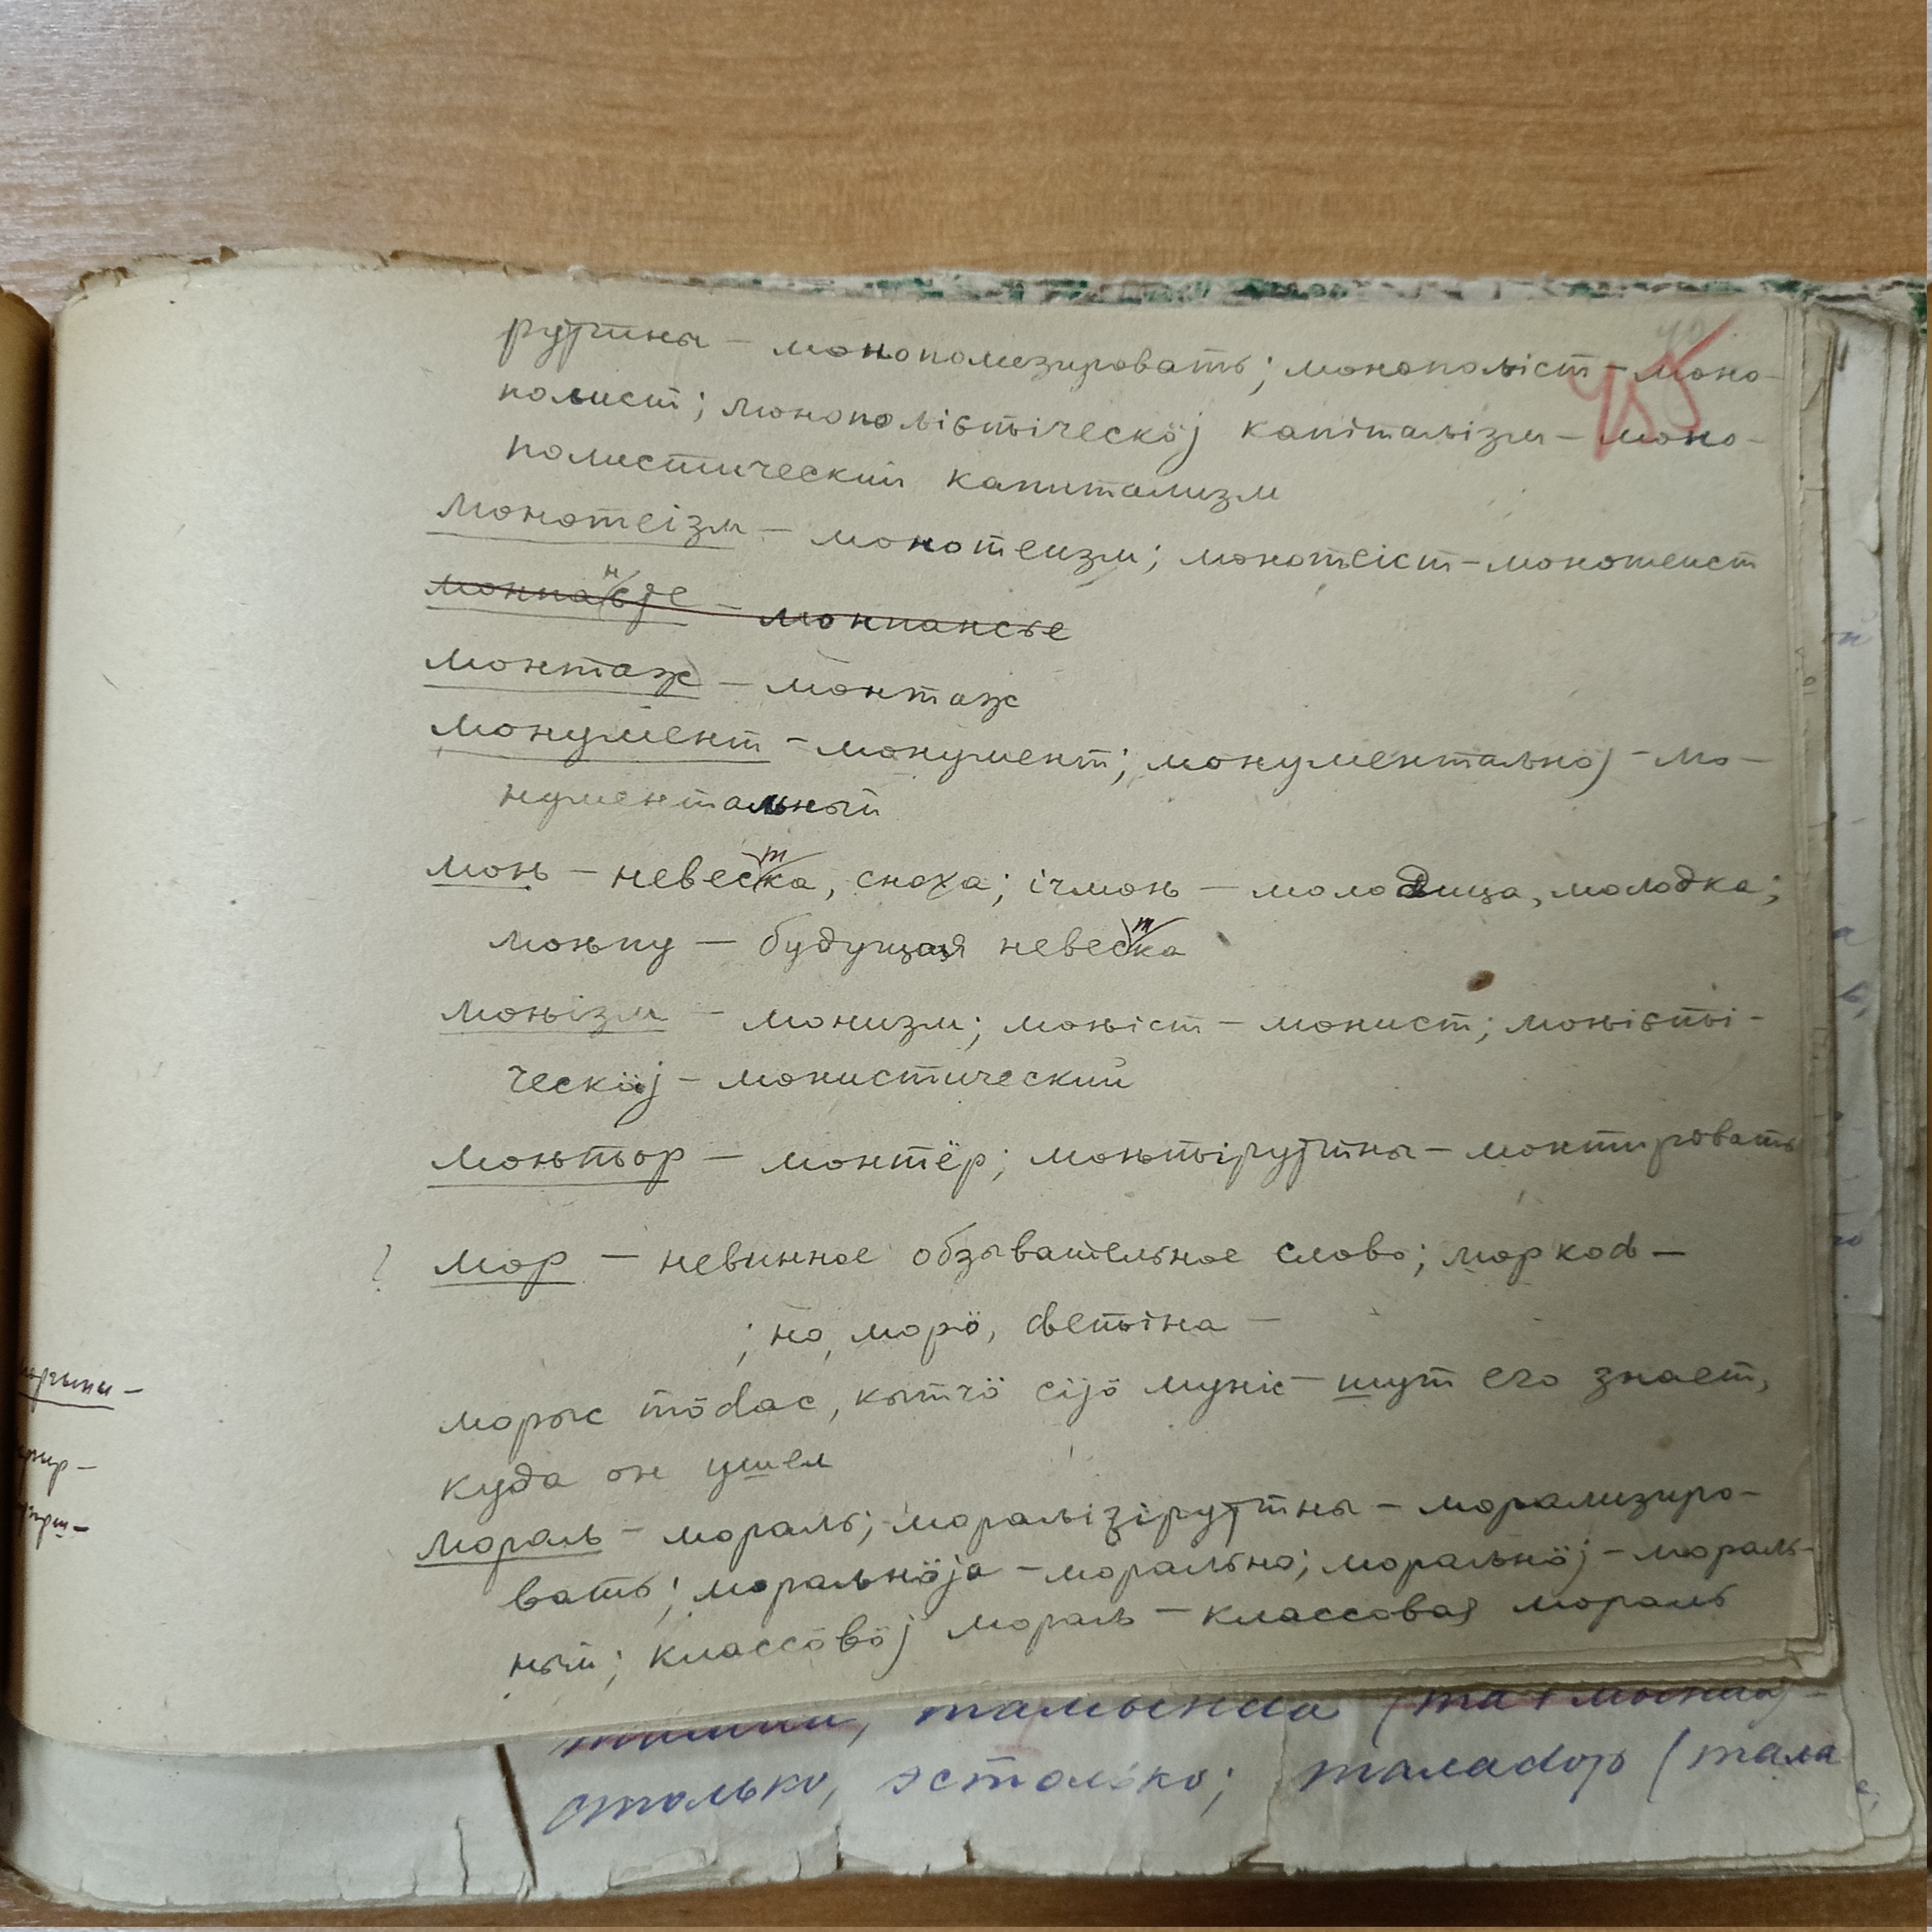 руjтны – монополизировать; монопоԉіст – моно-
полист; монопоԉіԍԏіческӧj капітаԉізм – моно-
полистический капитализм
монотеізм – монотеизм; монотеіст – монотеист
монпанԍjе – монпансье
монтаж – монтаж
монумент – монумент; монументаԉноj – мо-
нументальный
моԋ – невестка, сноха; ічмоԋ – молодица, молодка;
моԋпу – будущая невестка
моԋізм – монизм; моԋіст – монист; моԋіԍԏі-
ческӧj – монистический
моԋԏор – монтёр; моԋԏіруjтны – монтировать
? мор – невинное обзывательное слово; мор коԁ –
; но, морӧ, ԁвеԏіна –
морыс тӧԁас, кытчӧ сіjӧ муніс – шут его знает,
куда он ушел
мораԉ – мораль; мораԉізіруjтны – морализиро-
вать; мораԉнӧjа – морально; мораԉнӧj – мораль-
ный; классӧвӧj мораԉ – классовая мораль
столько, эстолько; талаԁор (тала